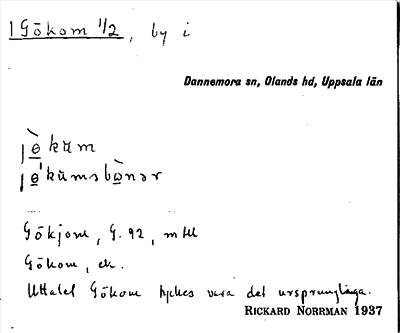 Gökom 1/2, by i
Dannemora sn, Olands hd, Uppsala län
jö̀kŭm
jö̀kŭmsbònər
Gökjom, G. 92, mtl
Gökom, ek.
Uttalet Gökom tyckes vara det ursprungliga.
RICKARD NORRMAN 1937